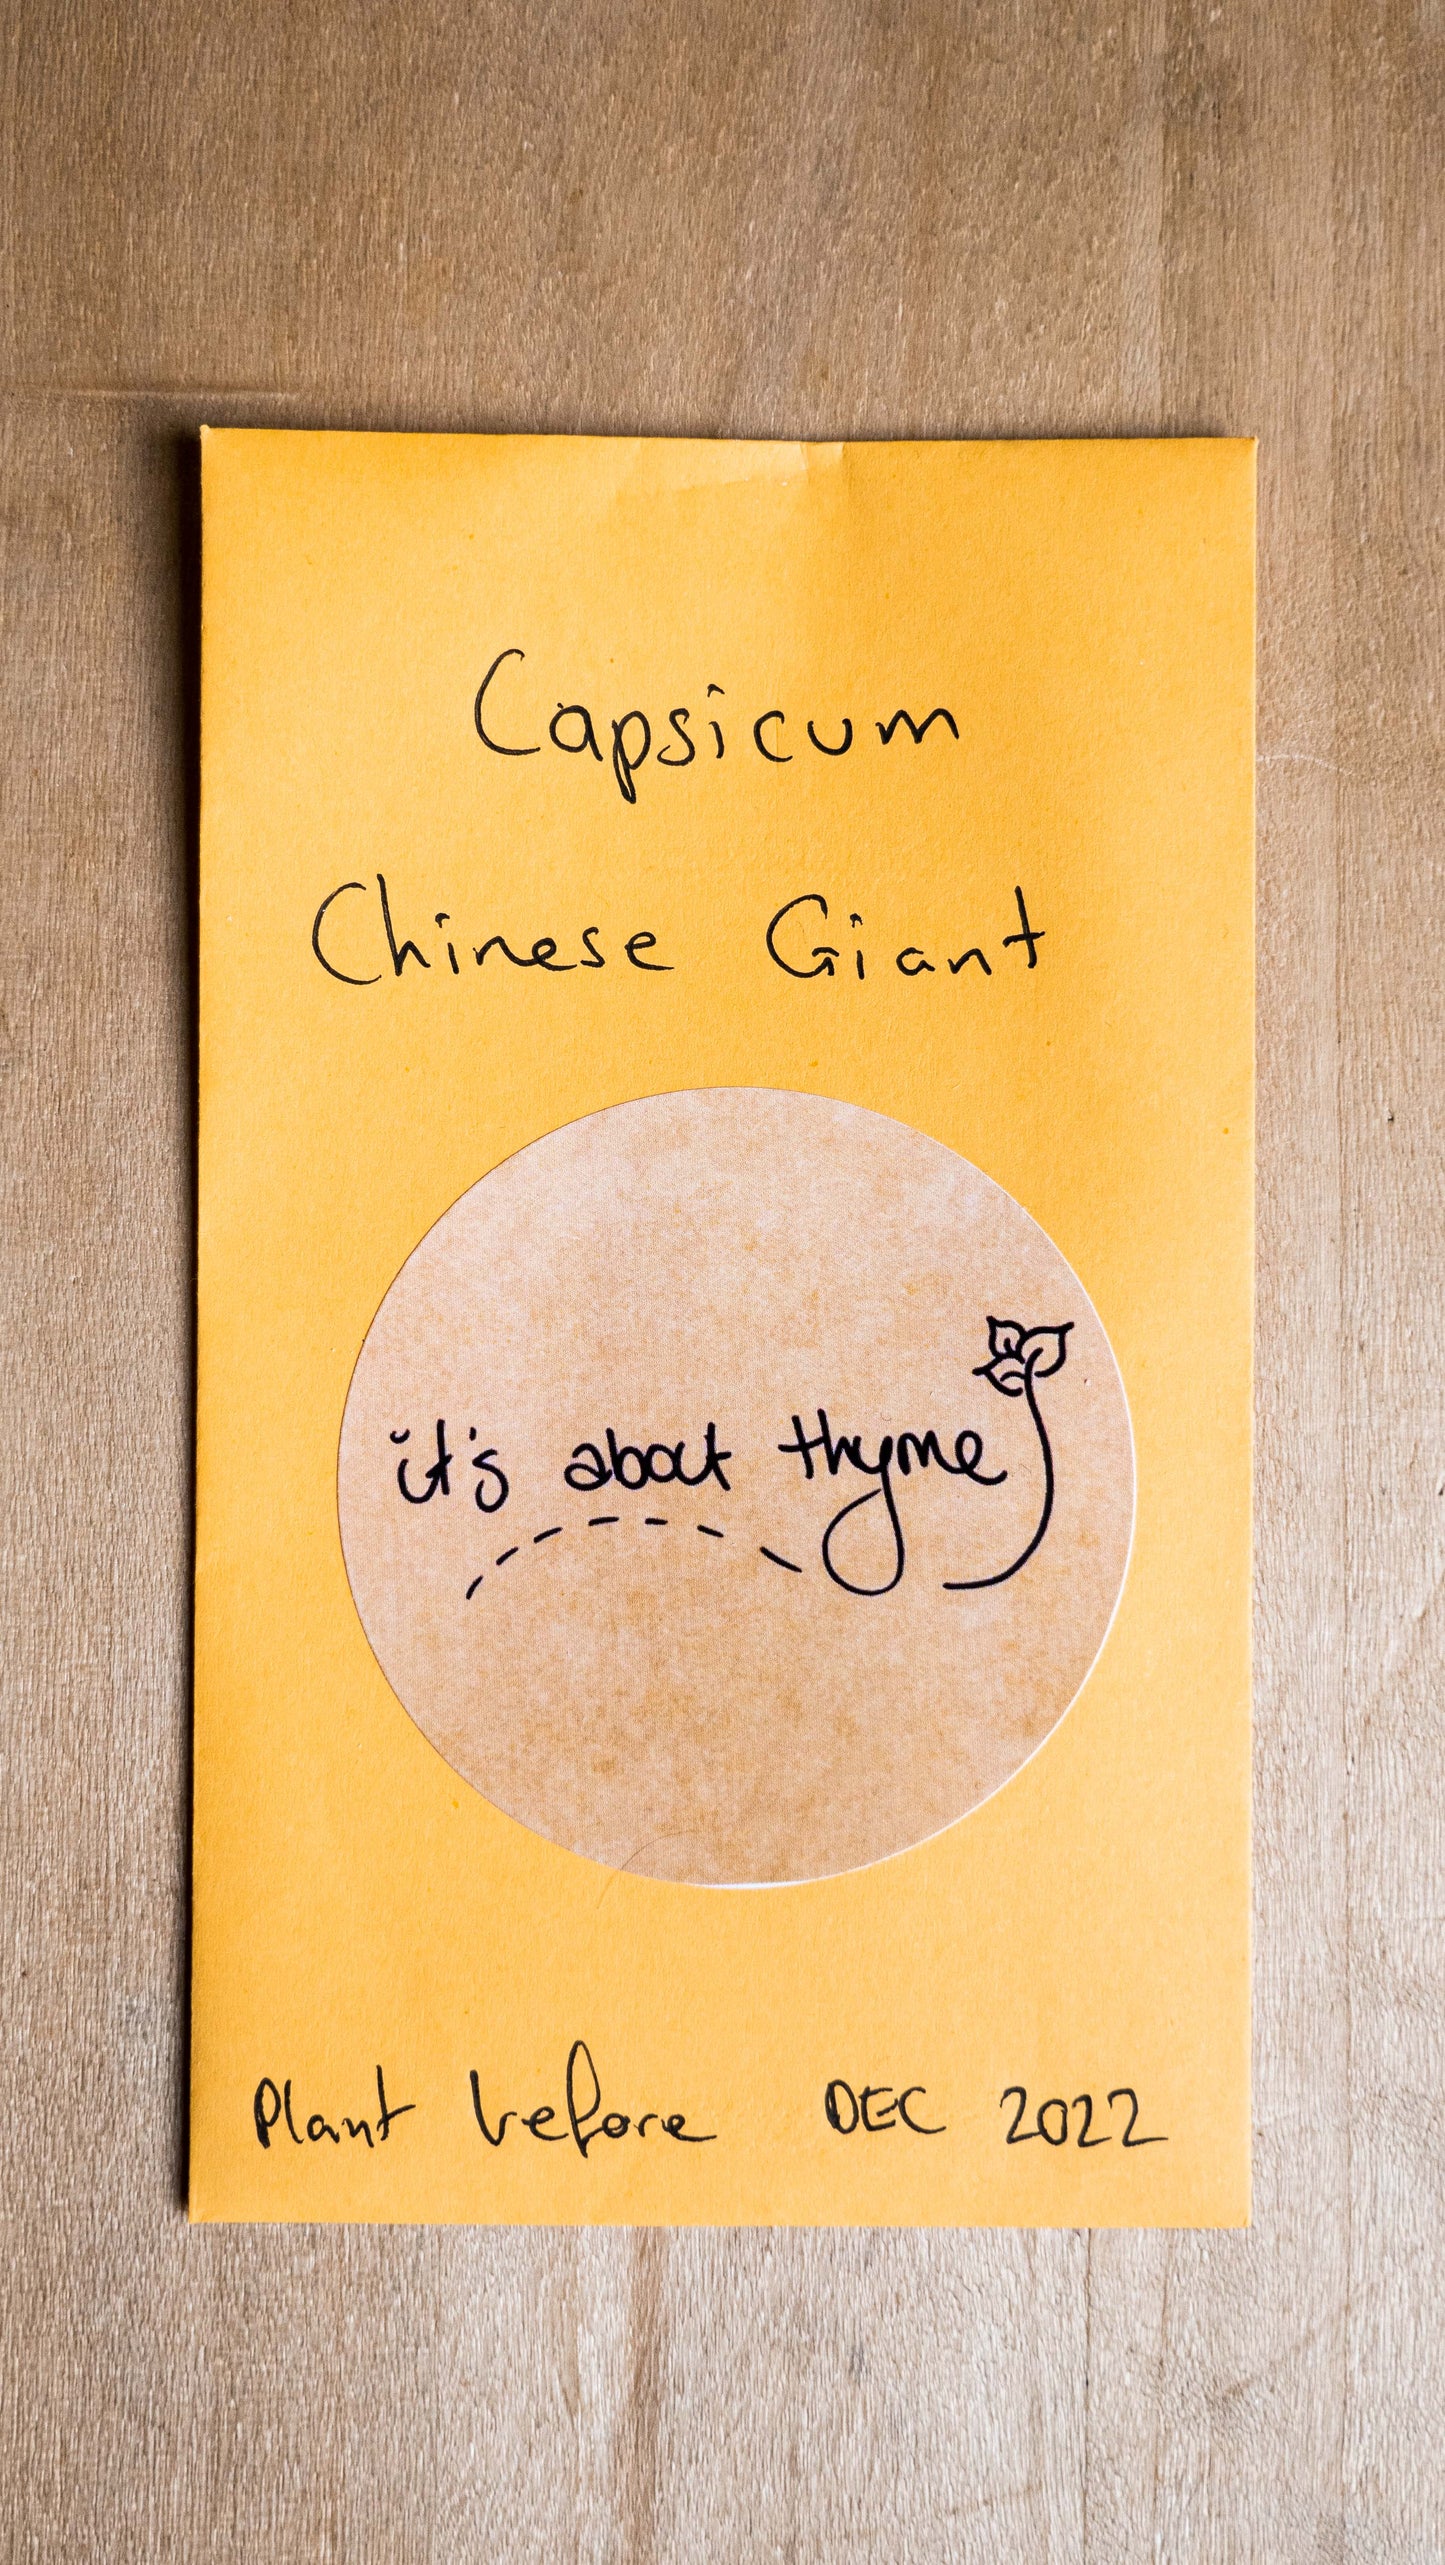 Capsicum
Chinese Giant
it's about thyme
Plant before DEC 2022